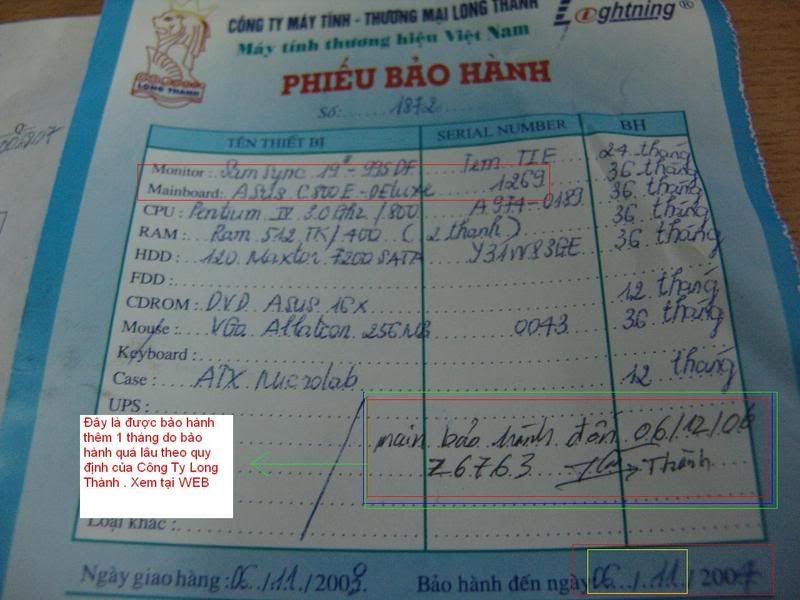 CÔNG TY MÁY TÍNH - THƯƠNG MẠI LONG THÀNH
Lightning ®
Máy tính thương hiệu Việt Nam
LONG THÀNH
PHIẾU BẢO HÀNH
Số: 1872
TÊN THIẾT BỊ SERIAL NUMBER BH
Monitor: Samsync 19" - 995DF Tem TIE 24 tháng
Mainboard: ASUS C800E-DELuxe 1269 36 tháng
CPU: Pentium IV 3.0 Ghz/800 A974-0189 36 tháng
RAM: Ram 512 TK/400 (2 thanh) 36 tháng
HDD: 120 Maxtor 7200 SATA Y31W83GE 36 tháng
FDD:
CDROM: DVD ASUS 16x 12 tháng
Mouse: VGA 256MB 0043 36 tháng
Keyboard:
Case: ATX Microlab 12 tháng
UPS:
Đây là được bảo hành
thêm 1 tháng do bảo
hành quá lâu theo quy
định của Công Ty Long
Thành . Xem tại WEB
main bảo hành đến 06/12/06
76763 Thành
Loại khác:
Ngày giao hàng: 06/11/2003 Bảo hành đến ngày 06/11/2007